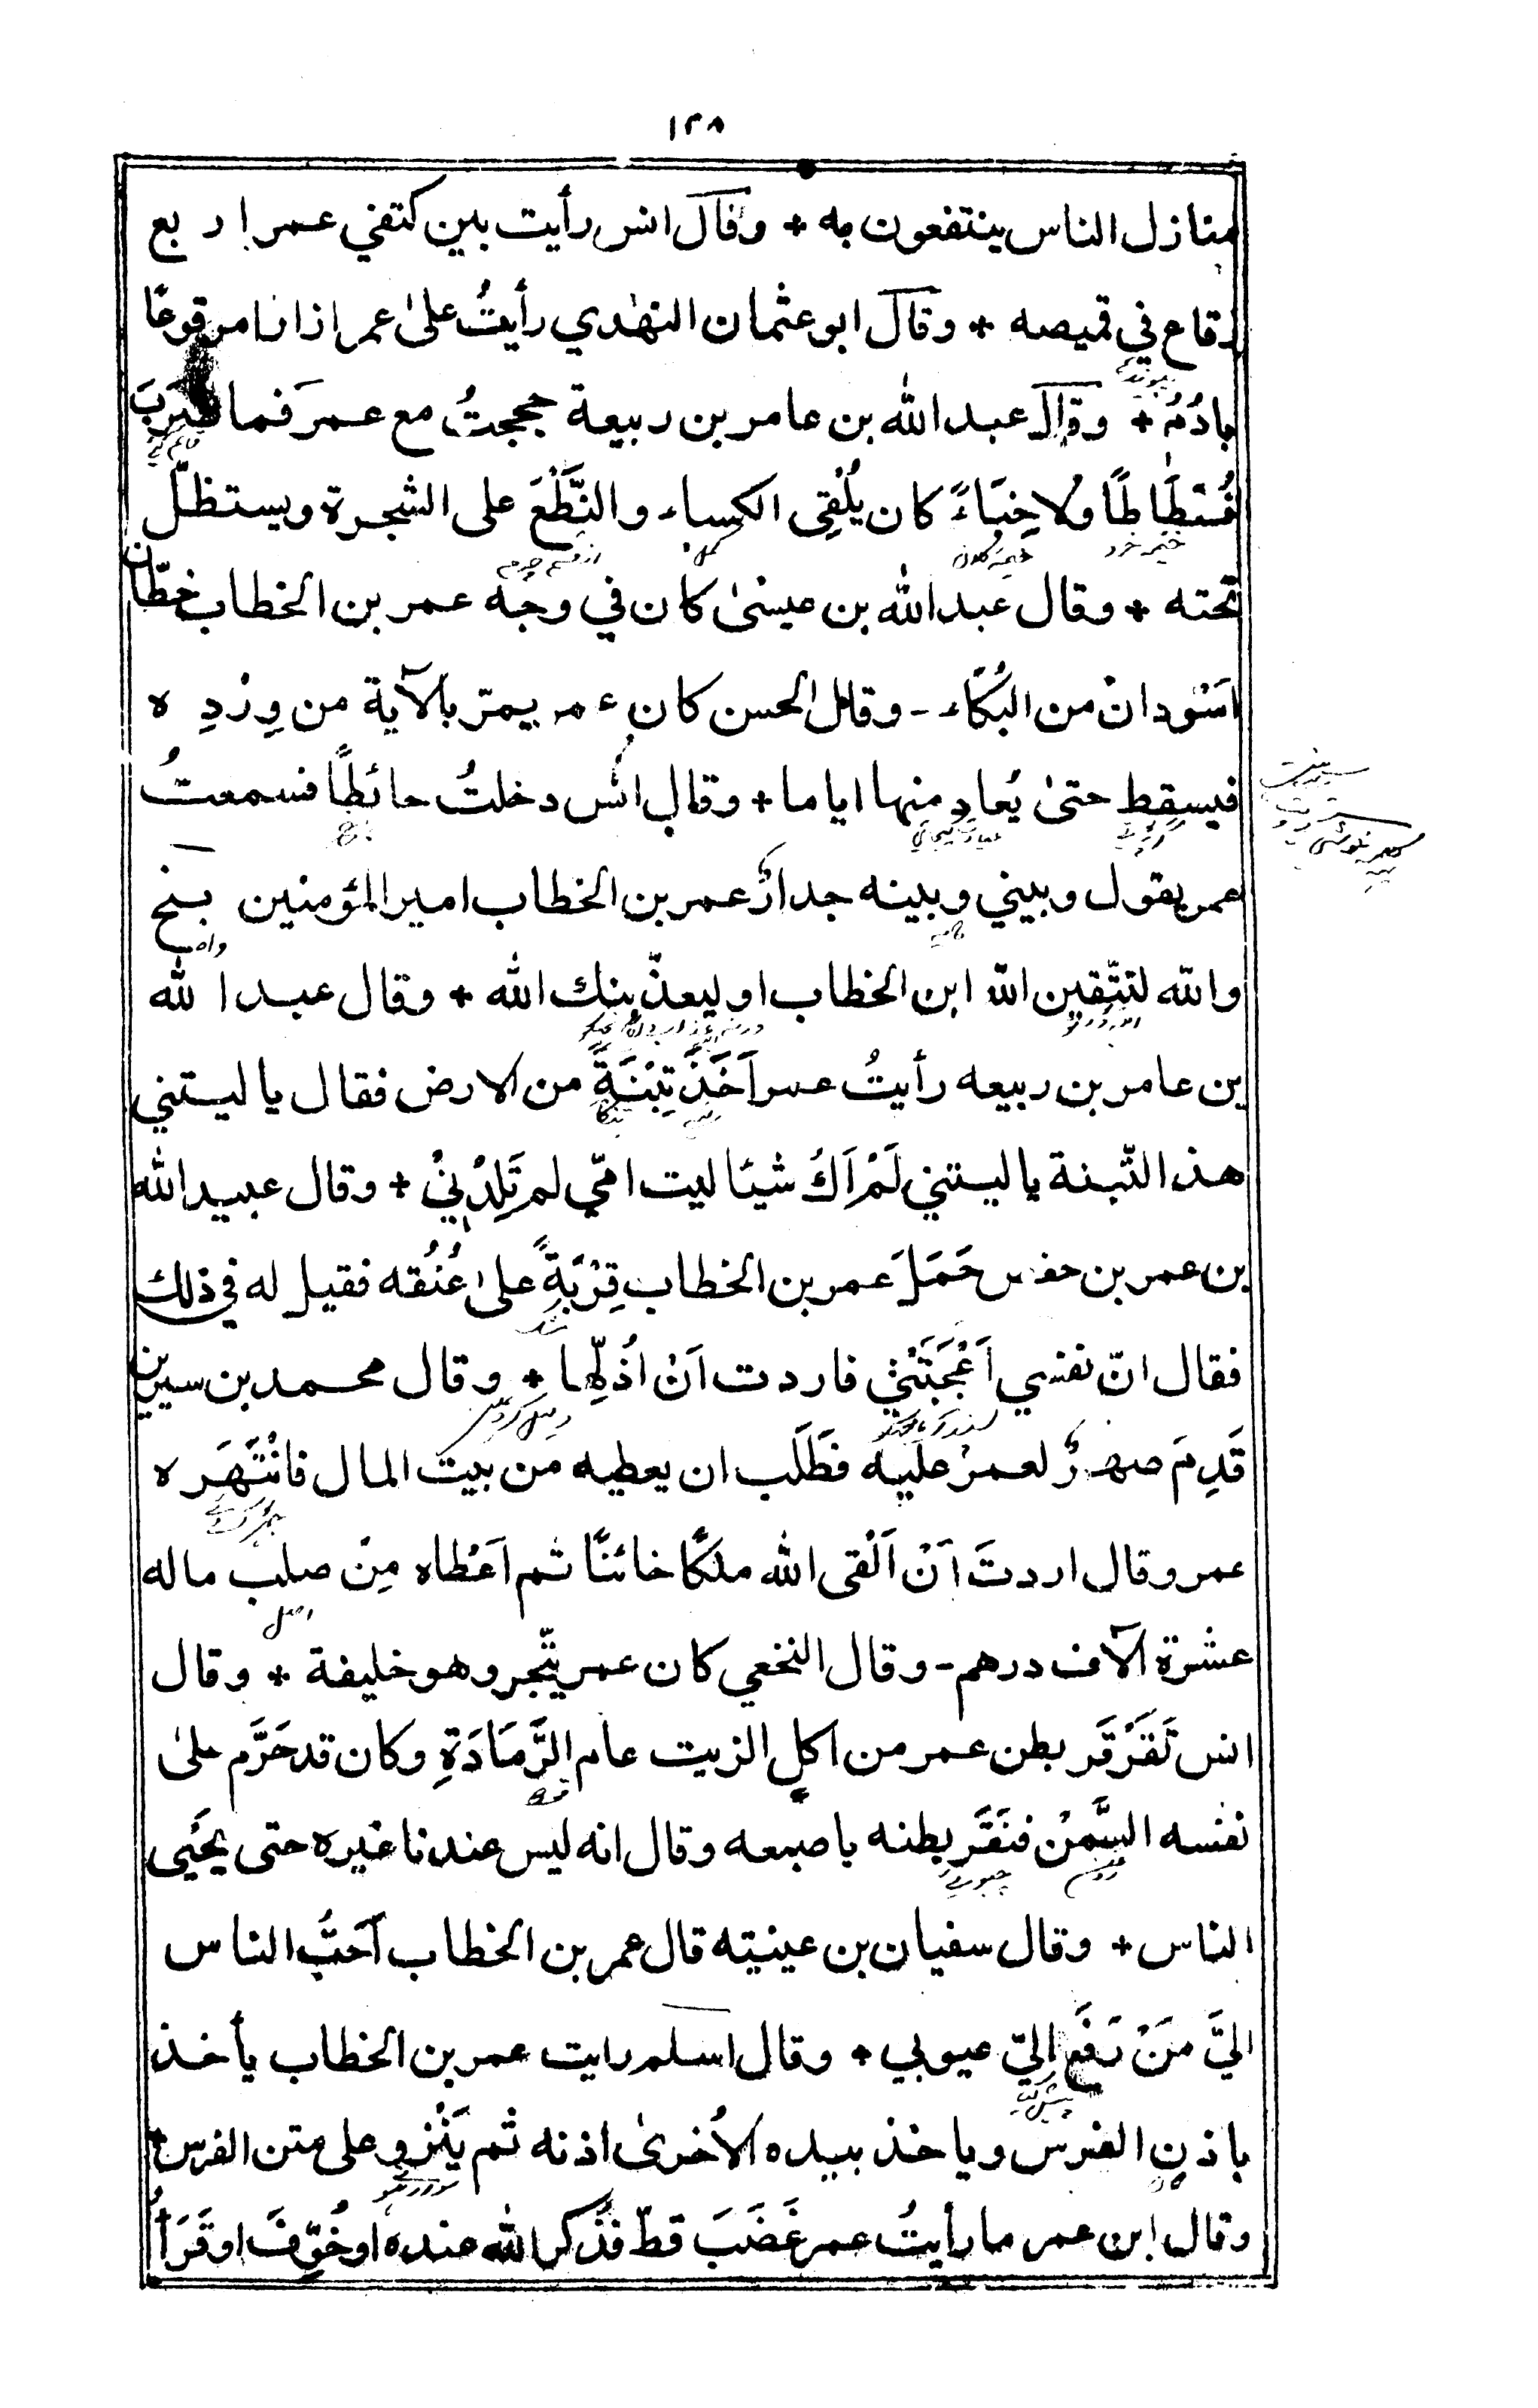 ١٢٨
منازل الناس ينتفعون به + وقال انس رأيت بين كتفي عمر اربع
رقاع في قميصه + وقال ابو عثمان النهدي رأيتُ علىٰ عمر ازارا مرقوعًا
بادُمٍ + وقال عبد الله بن عامر بن ربيعة حججتُ مع عمرَ فما ضَرَبَ
فُسْطَاطًا ولا خِبَاءً كان يُلْقِى الكساء والنِّطَعَ على الشجرة ويستظلّ
تحته + وقال عبد الله بن عيسىٰ كان في وجه عمر بن الخطاب خطّان
اَسْودانْ من البُكَاء - وقال الحسن كان عمر يمرّ بالآية من وِرْدِه
فيسقط حتىٰ يُعاد منها اياما + وقال انس دخلتُ حائطًا فسمعتُ
عمر يقول وبيني وبينه جدارٌ عمر بن الخطاب امير المؤمنين بخ
والله لتتّقين الله ابن الخطاب او ليعذّبنك الله + وقال عبد الله
بن عامر بن ربيعه رأيتُ عمر اَخَذَ تِبْنَةً من الارض فقال يا ليتني
هذ التّبنة يا ليتني لَمْ اَكُ شيئا ليت امّي لم تَلِدْنِيْ + وقال عبيد الله
بن عمر بن حفص حَمَلَ عمر بن الخطاب قِرْبَةً علىٰ عُنُقه فقيل له في ذلك
فقال انّ نفسي اَعْجَبَتْنِيْ فاردت اَنْ اُذلّها + وقال محمد بن سيرين
قَدِمَ صهرٌ لعمر عليه فطَلَب ان يعطيه من بيت المال فانْتَهَره
عمر وقال اردتَ اَنْ اَلْقى الله ملكًا خائنًا ثم اَعْطاه مِنْ صلب ماله
عشرة آلاف درهم - وقال النخعي كان عمر يتّجر وهو خليفة + وقال
انس تَقَرْقَر بطن عمر من اكلِ الزيت عام الرَّمَادَةِ وكان قد حَرَّم علىٰ
نفسه السَّمْنَ فنَقَرَ بطنه باصبعه وقال انه ليس عندنا غيره حتى يحْيَى
الناس + وقال سفيان بن عينيته قال عمر بن الخطاب اَحَبُّ الناس
اليَّ مَنْ رَفَعَ اليّ عيوبي + وقال اسلم رايت عمر بن الخطاب يأخذ
باذنِ الفرس وياخذ بيده الأخرىٰ اذنه ثم يَنْزو على متن الفرس +
وقال ابن عمر ما رأيتُ عمر غَضَبَ قطّ فذُكر الله عنده او خُوِّفَ او قَرَأَ